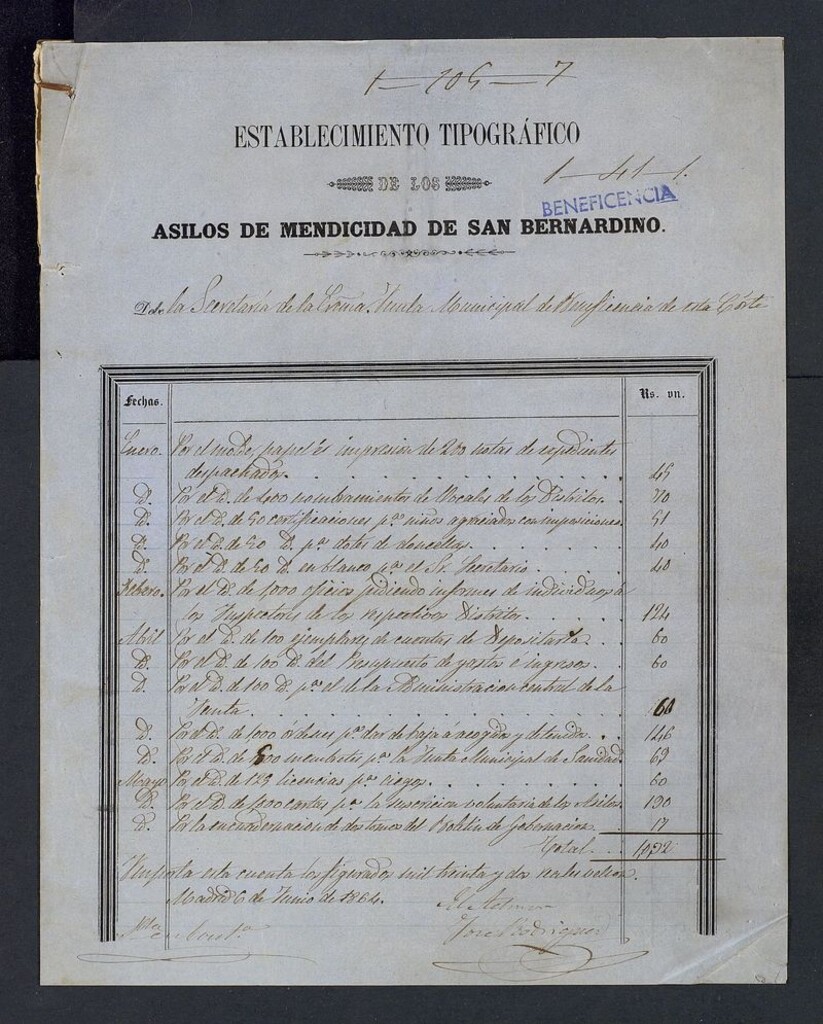 1—105—7
ESTABLECIMIENTO TIPOGRÁFICO
DE LOS
1—41—1.
BENEFICENCIA
ASILOS DE MENDICIDAD DE SAN BERNARDINO.
Debe la Secretaría de la Excma. Junta Municipal de Beneficencia de esta Córte
Fechas. Rs. vn.
Enero. Por el molde, papel é impresion de 200 notas de expedientes
despachados. 45
D. Por el D. de 400 nombramientos de Vocales de los Distritos. 70
D. Por el D. de 50 certificaciones pa niños agraciados con imposiciones. 51
D. Por el D. de 50 D. pa dotes de doncellas. 40
D. Por el D. de 50 D. en blanco pa el Sr. Secretario. 40
Febrero. Por el D. de 1,000 oficios pidiendo informes de individuos á
los Inspectores de los respectivos Distritos. 124
Abril Por el D. de 100 ejemplares de cuentas de Depositaría. 60
D. Por el D. de 100 D. del Presupuesto de gastos é ingresos. 60
D. Por el D. de 100 D. pa el de la Administracion central de la
Junta. 60
D. Por el D. de 1000 órdenes pa dar de baja á acogidos y detenidos. 126
D. Por el D. de 500 pa la Junta Municipal de Sanidad. 69
Mayo Por el D. de 125 licencias pa ciegos. 60
D. Por el D. de cartas pa la suscricion voluntaria de los Asilos. 190
D. Por la encuadernacion de dos tomos del Boletin de Gobernacion. 17
Total 1,032
Importa esta cuenta los figurados mil treinta y dos reales vellon.
Madrid 6 de Junio de 1864.
El
José Rodriguez